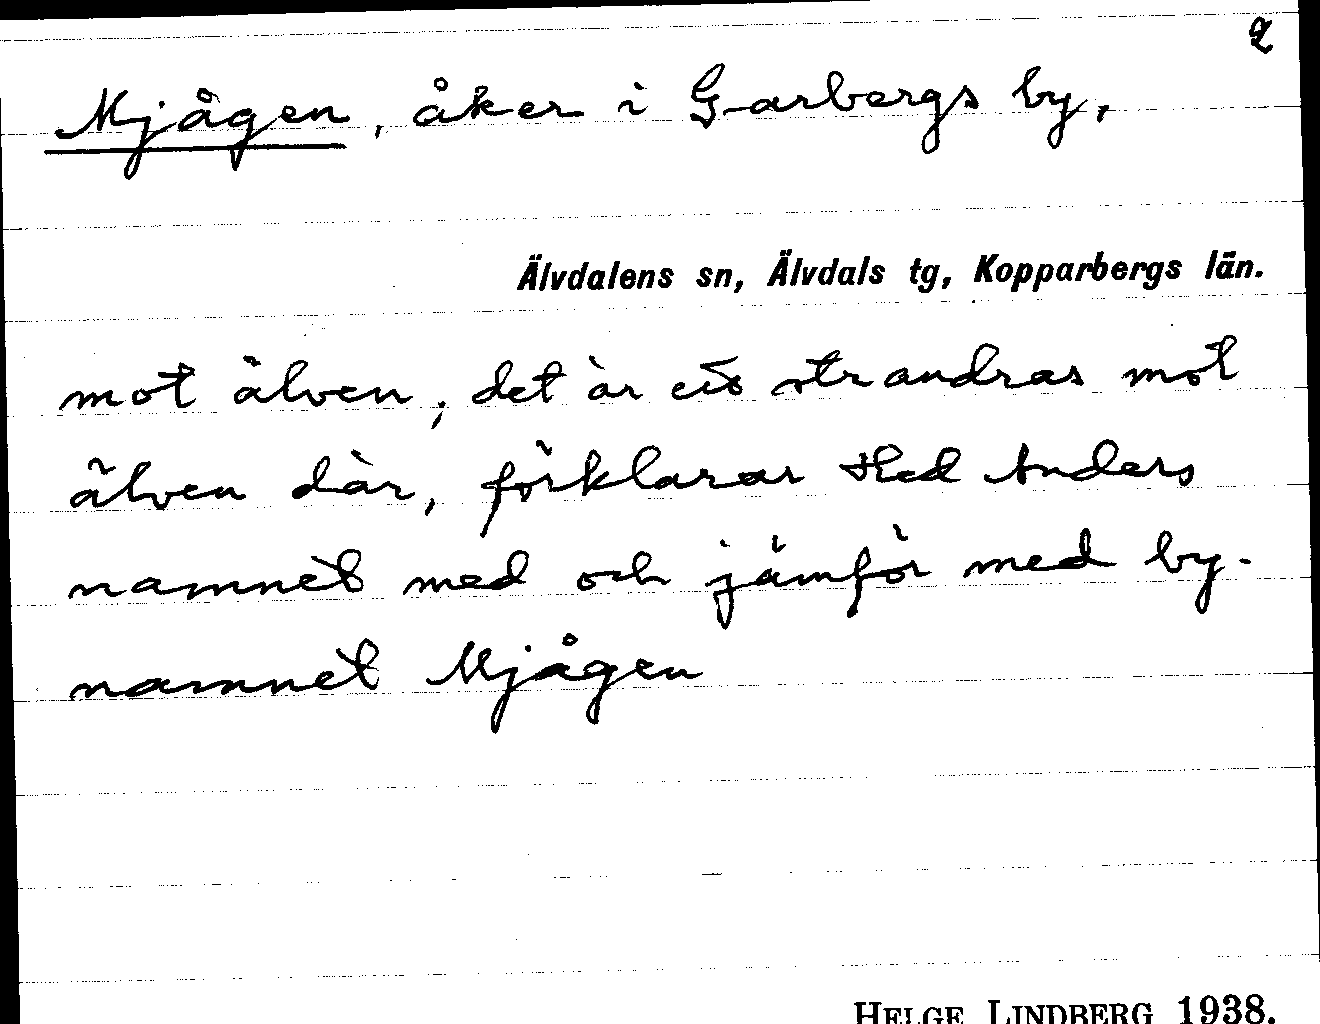 2
Mjågen, åker i Garbergs by,
Älvdalens sn, Älvdals tg, Kopparbergs län.
mot älven; det är ett strandras mot
älven där, förklarar Hed Anders
namnet med och jämför med by-
namnet Mjågen
HELGE LINDBERG 1938.